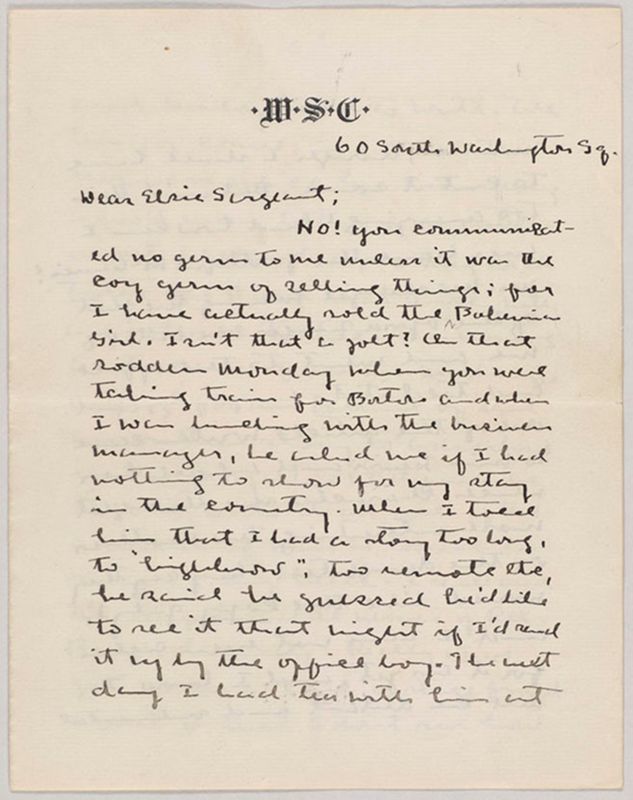 ·W·S·C·
60 South Washington Sq.
Dear Elsie Sergeant;
No! you communicat-
ed no germ to me unless it was the
cozy germ of selling things; for
I have actually sold the Bohemian
Girl. Isn't that a jolt? On that
sodden Monday when you were
taking train for Boston and when
I was lunching with the business
manager, he asked me if I had
nothing to show for my stay
in the country. When I told
him that I had a story too long,
to "highbrow", too remote etc,
he said he guessed he'd like
to see it that night if I'd send
it up by the office boy. The next
day I had tea with him at